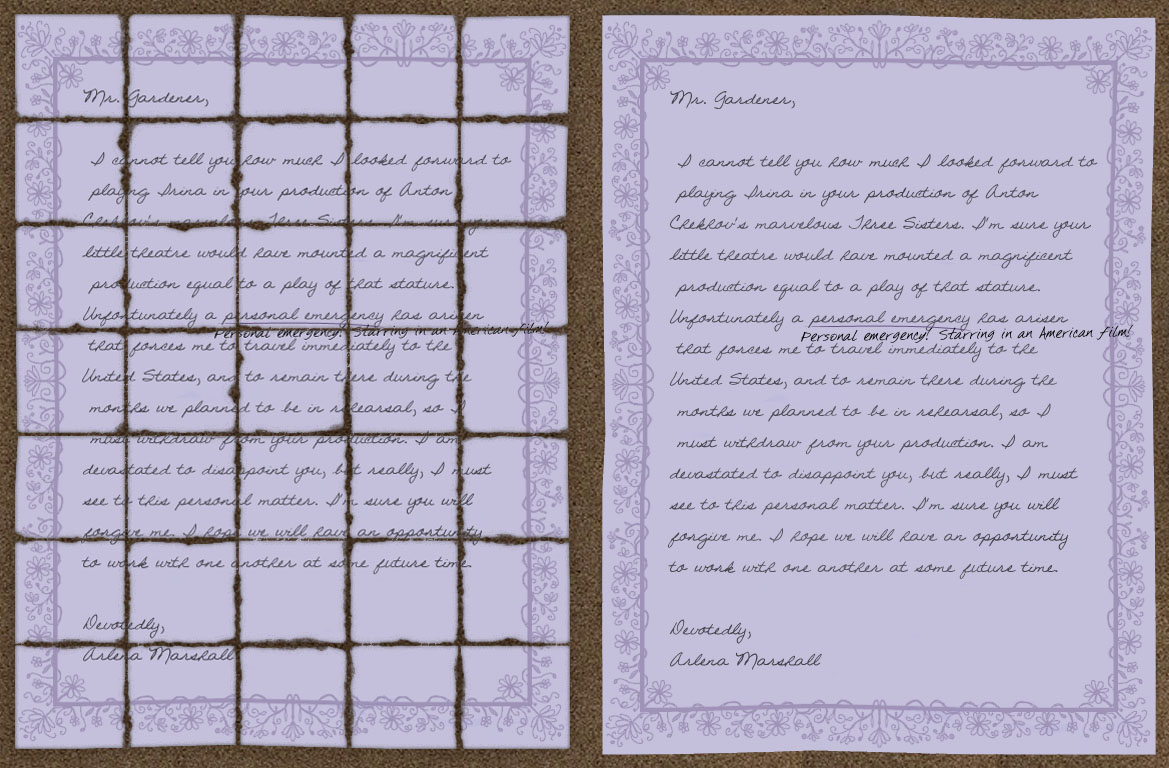 Mr. Gardener,
I cannot tell you how much I looked forward to
playing Irina in your production of Anton
Chekhov's marvelous Three Sisters. I'm sure your
little theatre would have mounted a magnificent
production equal to a play of that stature.
Unfortunately a personal emergency has arisen
Personal emergency! Starring in an American film!
that forces me to travel immediately to the
United States, and to remain there during the
months we planned to be in rehearsal, so I
must withdraw from your production. I am
devastated to disappoint you, but really, I must
see to this personal matter. I'm sure you will
forgive me. I hope we will have an opportunity
to work with one another at some future time.
Devotedly,
Arlena Marshall
Mr. Gardener,
I cannot tell you how much I looked forward to
playing Irina in your production of Anton
Chekhov's marvelous Three Sisters. I'm sure your
little theatre would have mounted a magnificent
production equal to a play of that stature.
Unfortunately a personal emergency has arisen
Personal emergency! Starring in an American film!
that forces me to travel immediately to the
United States, and to remain there during the
months we planned to be in rehearsal, so I
must withdraw from your production. I am
devastated to disappoint you, but really, I must
see to this personal matter. I'm sure you will
forgive me. I hope we will have an opportunity
to work with one another at some future time.
Devotedly,
Arlena Marshall